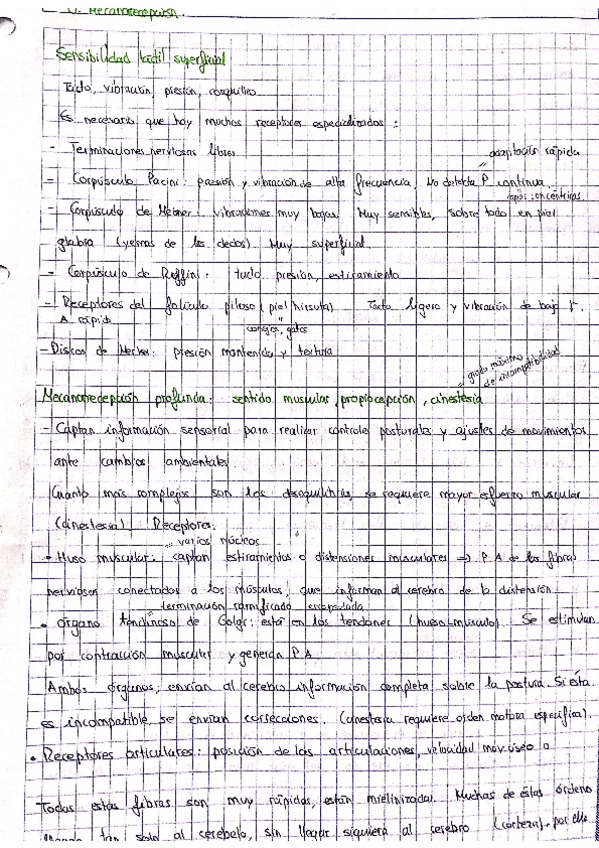 Mecanorrecepción.
Sensibilidad táctil superficial
Tacto, vibración, presión, cosquilleo
Es necesario que hay muchos receptores especializados :
- Terminaciones nerviosas libres
adaptación rápida
- Corpúsculo Pacini: presión y vibración de alta frecuencia, No detecta P continua
capas concéntricas
- Corpúsculo de Meisner: vibraciones muy bajas. Muy sensibles, sobre todo en piel
glabra (yemas de los dedos) Muy superficial.
- Corpúsculo de Ruffini: tacto, presión, estiramiento
- Receptores del folículo piloso (piel hirsuta) Tacto ligero y vibración de baja F.
A rápida
conejos, gatos
- Discos de Merkel: presión mantenida y textura
= grado máximo
de incompatibilidad
Mecanorrecepción profunda: sentido muscular, propiocepción, cinestesia
- Captan información sensorial para realizar controles posturales y ajustes de movimientos
ante cambios ambientales
Cuanto más complejos son los desequilibrios, se requiere mayor esfuerzo muscular
(cinestesia). Receptores:
varios núcleos
• Huso muscular: captan estiramientos o distensiones musculares => P A de las fibras
nerviosas conectadas a los músculos, que informan al cerebro de la distensión
terminación ramificada encapsulada
• Órgano tendinoso de Golgi: está en los tendones (hueso-musculo). Se estimulan
por contracción muscular y generan P A
Ambos órganos, envían al cerebro información completa sobre la postura. Si ésta
es incompatible se envían correcciones. (cinestesia requiere orden motora específica).
• Receptores articulares: posición de las articulaciones, velocidad
Todas estas fibras son muy rápidas, están mielinizadas. Muchas de éstas órdenes
tan solo al cerebelo, sin llegar siquiera al cerebro (corteza), por ello